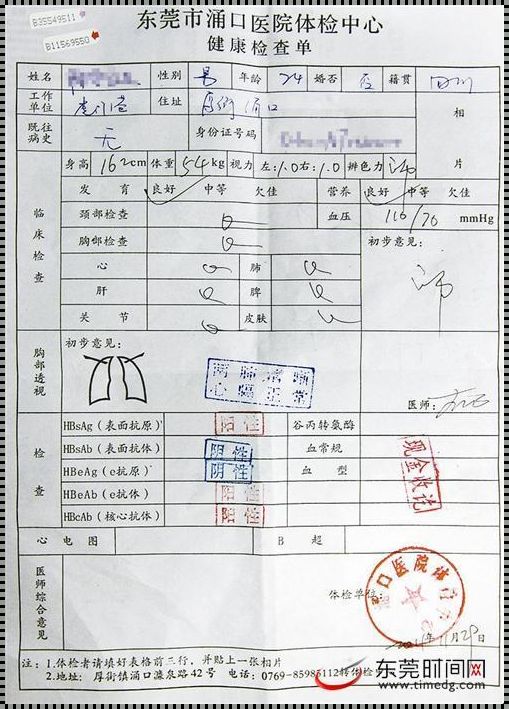 B35549511
B11569550
东莞市涌口医院体检中心
健康检查单
姓名 性别 男 年龄 24 婚否 否 籍贯 四川
工作单位 住址 厚街涌口 相片
既往病史 无 身份证号码
身高 162cm 体重 54kg 视力 左:1.0右:1.0 辨色力
临床检查
发育 良好 中等 欠佳 营养 良好 中等 欠佳
颈部检查 血压 110/70 mmHg
胸部检查 初步意见:
心 肺
肝 脾
关节 皮肤
胸部透视 初步意见:
医师:
检查
HBsAg(表面抗原) 阳性 谷丙转氨酶
HBsAb(表面抗体) 阴性 血常规
HBeAg(e抗原) 阴性 血型
HBeAb(e抗体) 阳性
HBcAb(核心抗体) 阳性
现金收讫
心电图 B超
医师综合意见 体检单位:
口医院体
11月29日
注:1.体检者请填好表格前三行,并贴上一张相片
2.地址:厚街镇涌口濂泉路42号 电话:0769-85985112转体检
东莞时间网
www.timedg.com